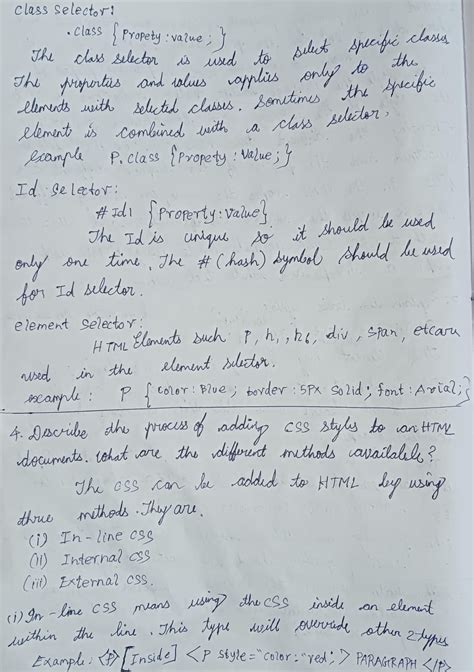 Class Selector:
.class {Propety : value ; }
The class selector is used to select specific classes
The properties and values applies only to the
elements with selected classes. Sometimes the specific
element is combined with a class selector,
example P.class {Propety : Value ; }
Id Selector:
#Id1 {Property : Value}
The Id is unique so it should be used
only one time. The # (hash) symbol should be used
for Id selector.
element selector:
HTML Elements such P, h1, h6, div, span, etc are
used in the element selector.
example : P {color : Blue ; border : 5Px Solid ; font : Arial ; }
4. Describe the process of adding CSS styles to an HTML
documents. What are the different methods available?
The CSS can be added to HTML by using
three methods. They are.
(i) In-line CSS
(ii) Internal CSS
(iii) External CSS.
(i) In-line CSS means using the CSS inside an element
within the line. This type will override other 2 types
Example: <P> [Inside] <P style="color: 'red;'> PARAGRAPH </P>